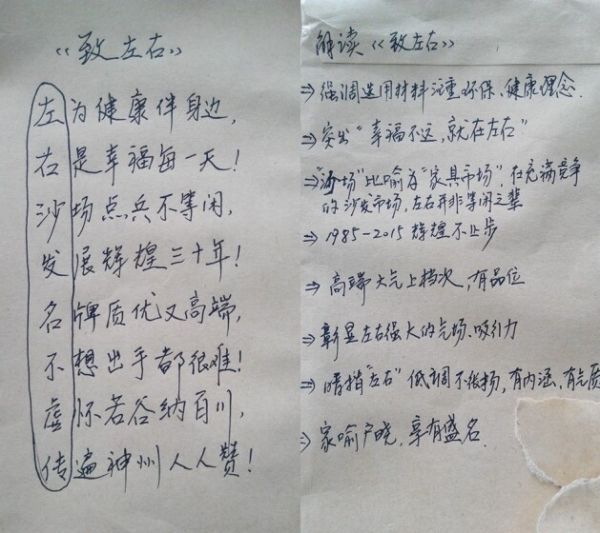 《致左右》
左为健康伴身边,
右是幸福每一天!
沙场点兵不等闲,
发展辉煌三十年!
名牌质优又高端,
不想出手都很难!
虚怀若谷纳百川,
传遍神州人人赞!
解读《致左右》.
⇒强调选用材料注重环保、健康理念.
⇒突出“幸福不远,就在左右”
⇒“沙场”比喻为“家具市场”,在充满竞争
的沙发市场,左右并非等闲之辈
⇒1985-2015 辉煌不止步
⇒高端大气上档次,有品位
⇒彰显左右强大的气场、吸引力
⇒暗指“左右”低调不张扬,有内涵,有气质
⇒家喻户晓,享有盛名.